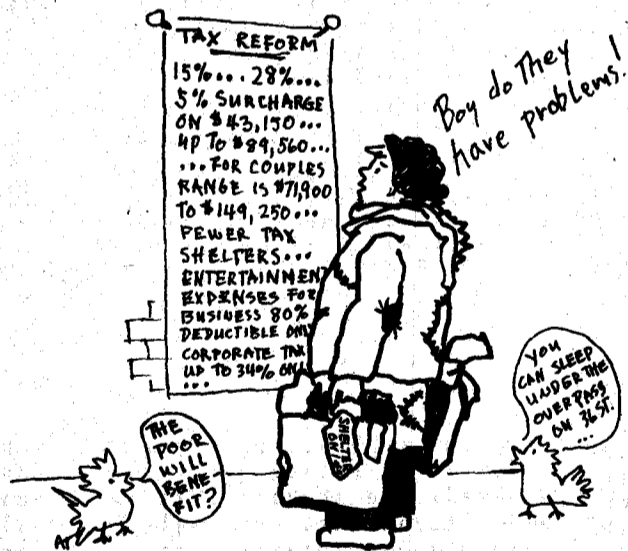 TAX REFORM
15%... 28%...
5% SURCHARGE
ON $43,150...
UP TO $89,560...
...FOR COUPLES
RANGE IS $71,900
TO $149,250...
FEWER TAX
SHELTERS...
ENTERTAINMENT
EXPENSES FOR
BUSINESS 80%
DEDUCTIBLE ONLY
CORPORATE TAX
UP TO 34% ONLY
...
Boy do They
have problems!
SHELTER
ON
THE
POOR
WILL
BENE
FIT?
YOU
CAN SLEEP
UNDER THE
OVERPASS
ON 36 ST.
...